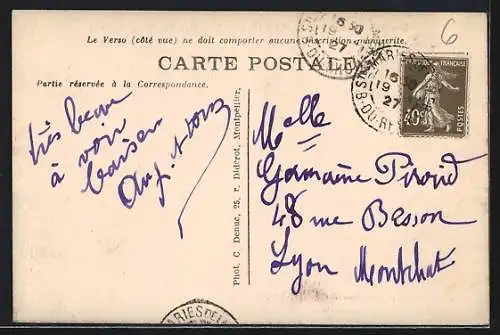 Le Verso (côté vue) ne doit comporter aucune Inscription manuscrite.
CARTE POSTALE
Partie réservée à la Correspondance.
très beau
à voir
baisers
à tous
Phot. C Denuc, 25, r. Diderot, Montpellier.
Melle
Germaine Piroud
48 rue Besson
Lyon Montchat
RÉPUBLIQUE FRANÇAISE
POSTES
16
19
27
6